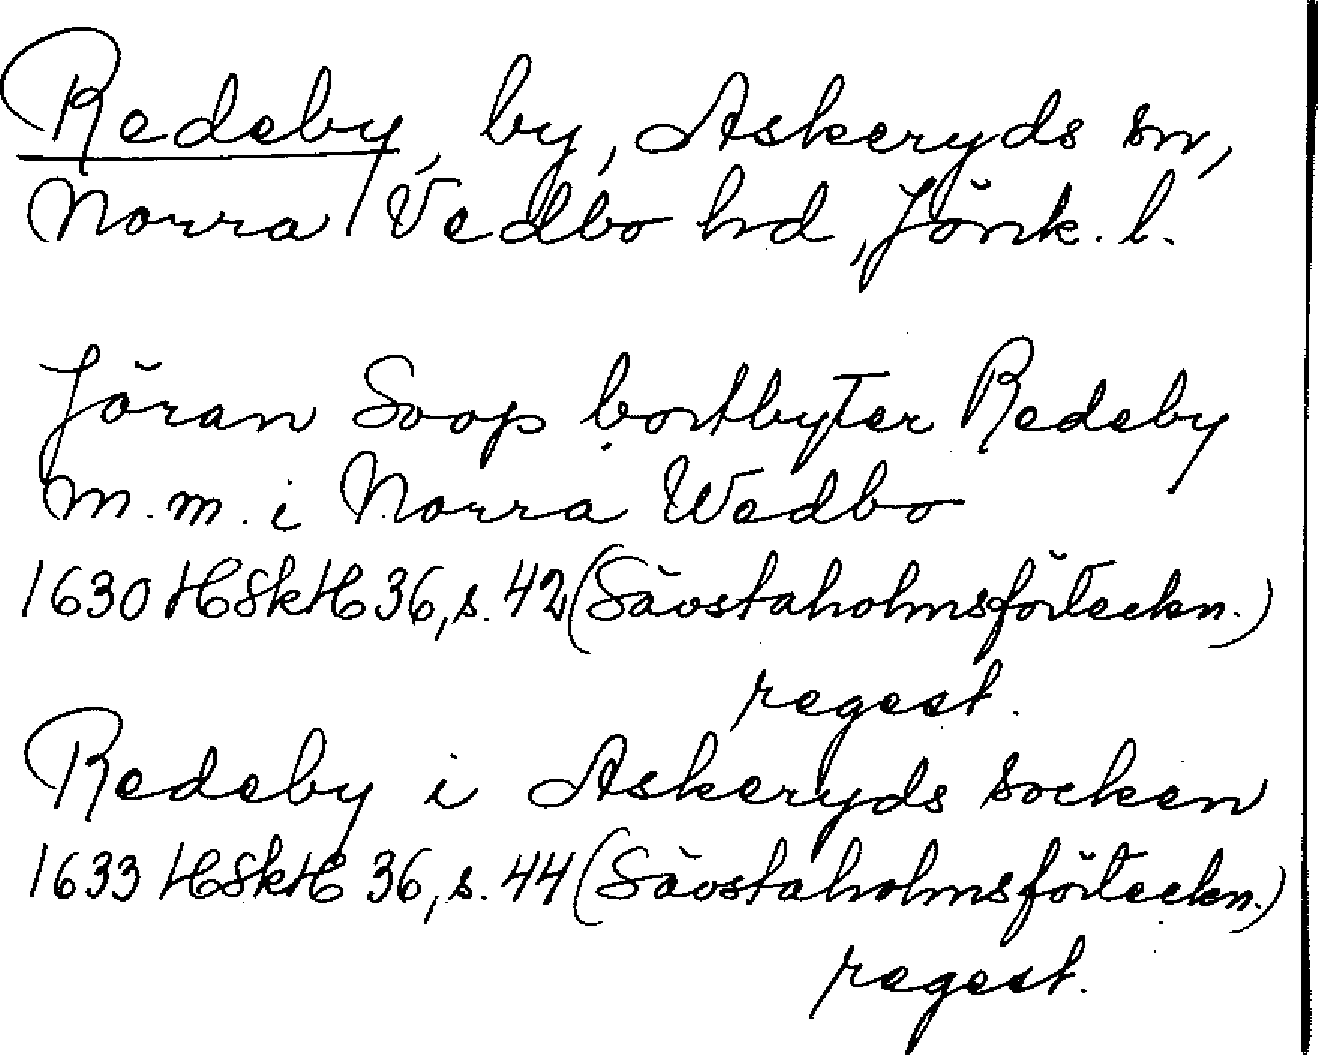 Redeby, by, Askeryds sn,
Norra Vedbo hd, Jönk. l.
Jöran Soop bortbyter Redeby
m.m. i Norra Wedbo
1630 HSkH 36, s. 42 (Sävstaholmsförteckn.)
regest.
Redeby i Askeryds socken
1633 HSkH 36, s. 44 (Sävstaholmsförteckn.)
regest.